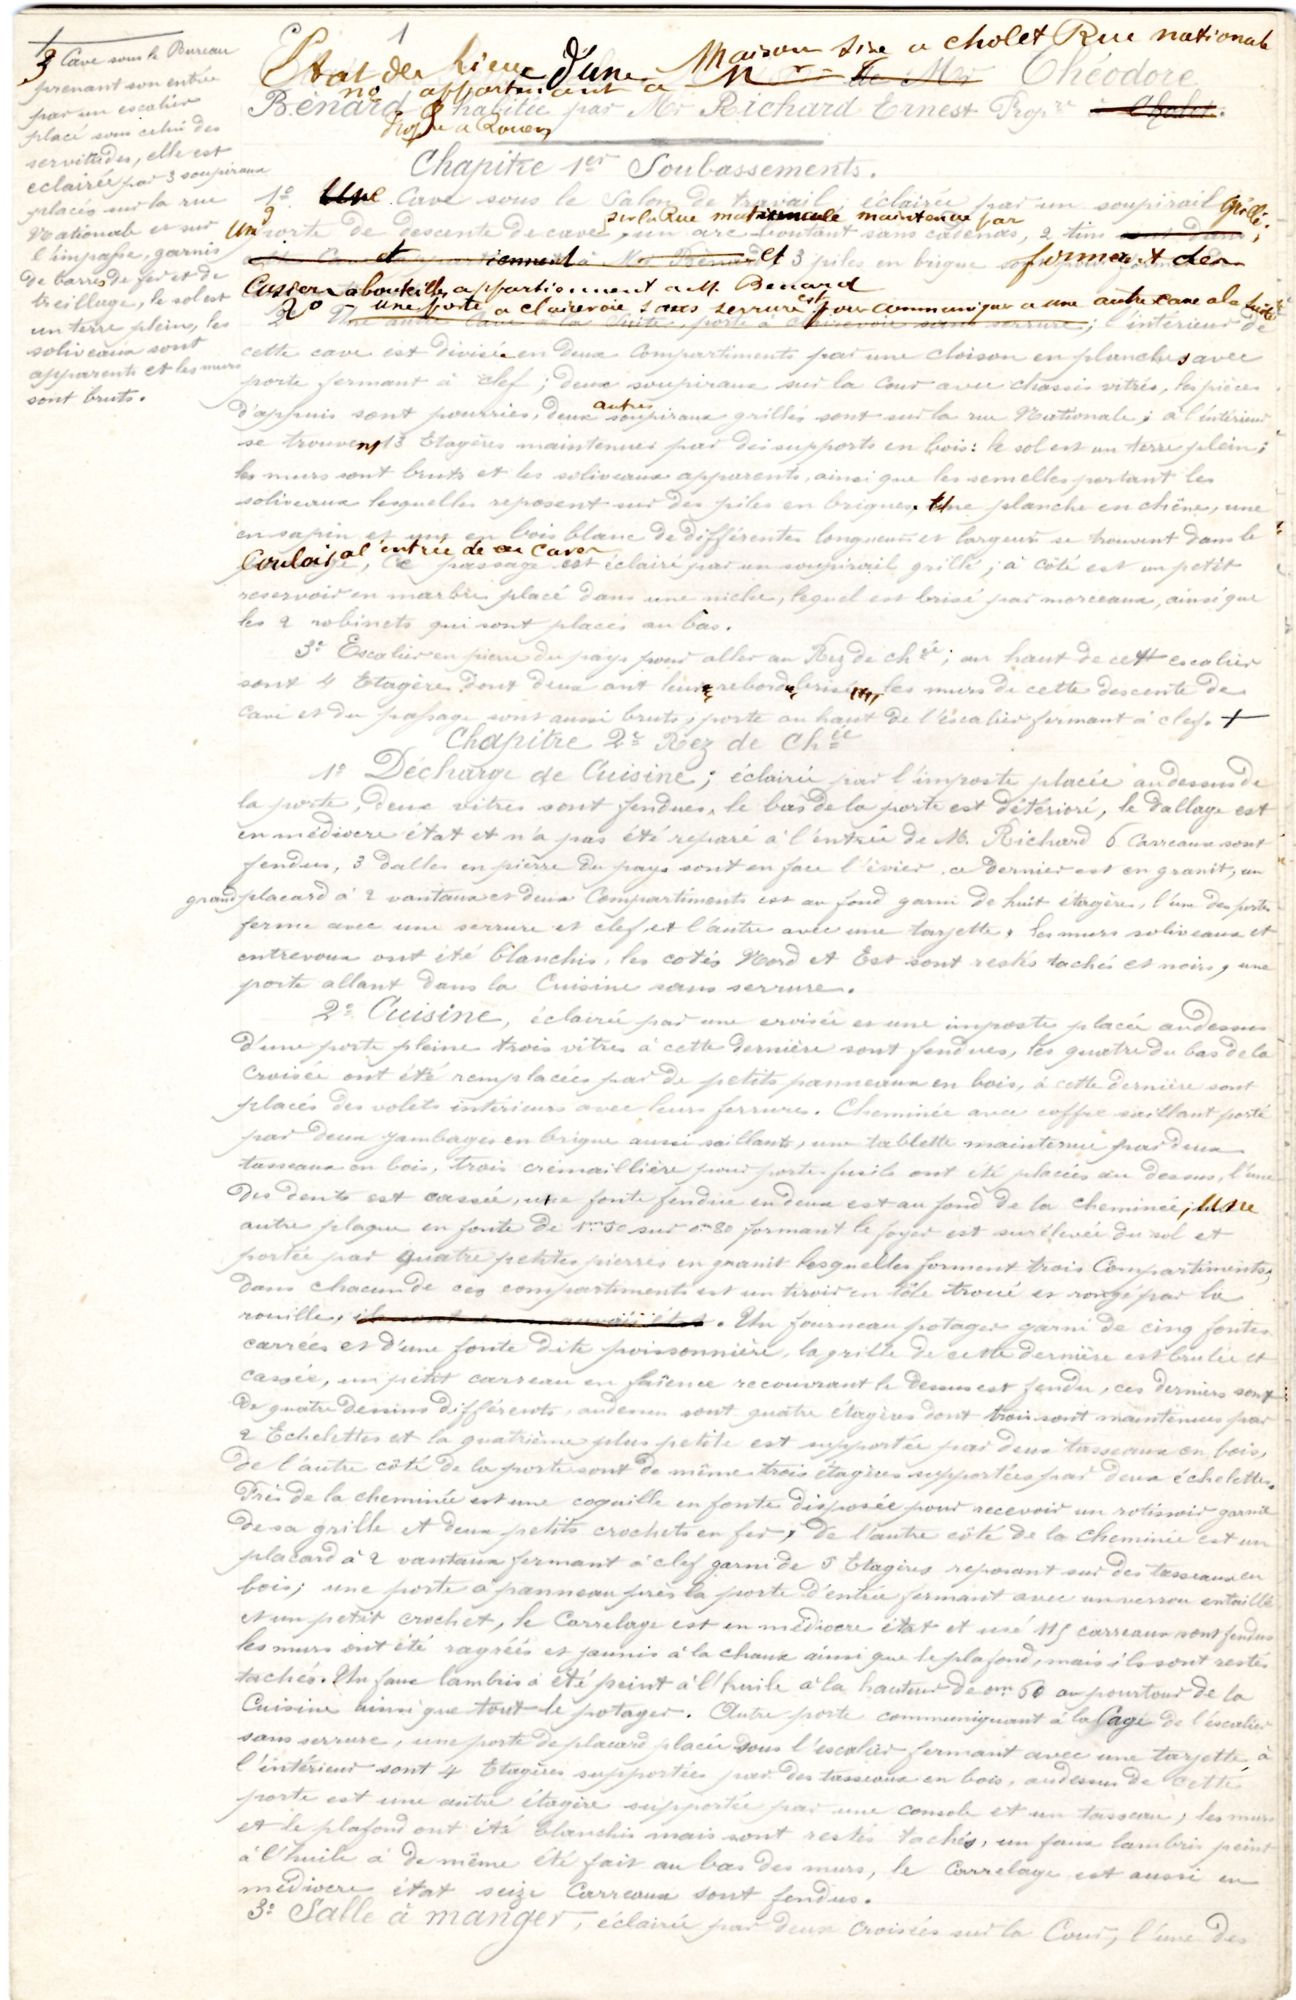 1
Etat des lieux d'une Maison sise a cholet Rue nationale
no appartenant a Mr Théodore
Bénard & habitée par Mr Richard Ernest Propre à Cholet.
Propre a Rouen
Chapitre 1er Soubassements.
1º Une Cave sous le Salon de travail, éclairée par un soupirail grillé;
sur la Rue nationale maintenue par
une porte de descente de cave, un arc boutant sans cadenas, 2 tins
et 3 piles en brique formant des
Casiers a bouteilles appartiennent a M. Bénard
2º une porte a clairevoie sans serrure est pour communiquer a une autre cave a la suite
2º Une autre Cave à la suite, porte à clairevoie sans serrure; l'intérieur de
cette cave est divisée en deux Compartiments par une cloison en planches avec
porte fermant à clef; deux soupiraux sur la Cour avec chassis vitrés, les pièces
d'appuis sont pourries, deux autres soupiraux grillés sont sur la rue Nationale; à l'intérieur
se trouvent 13 Etagères maintenues par des supports en bois: le sol est un terre plein;
les murs sont bruts et les soliveaux apparents, ainsi que les semelles portant les
soliveaux lesquelles reposent sur des piles en briques. Une planche en chêne, une
en sapin et une en bois blanc de différentes longueurs et largeurs se trouvent dans le
Couloir a l'entrée de ce caveau
, Ce passage est éclairé par un soupirail grillé; à côté est un petit
reservoir en marbre placé dans une niche, lequel est brisé par morceaux, ainsi que
les 2 robinets qui sont placés au bas.
3º Escalier en pierre du pays pour aller au Rez de chée; au haut de cette escalier
sont 4 Etagères dont deux ont leurs rebords brisés, les murs de cette descente de
Cave et du passage sont aussi bruts, porte au haut de l'escalier fermant à clef. +
+
3º Cave sous le Bureau
prenant son entrée
par un escalier
placé sous celui des
servitudes, elle est
eclairée par 3 soupiraux
placés sur la rue
Nationale et sur
l'impasse, garnis
de barres de fer et de
treillage, le sol est
un terre plein, les
soliveaux sont
apparents et les murs
sont bruts.
Chapitre 2e Rez de Chée
1º Décharge de Cuisine; éclairée par l'imposte placée au dessus de
la porte, deux vitres sont fendues, le bas de la porte est détérioré, le dallage est
en médiocre état et n'a pas été reparé à l'entrée de M. Richard 6 Carreaux sont
fendus, 3 dalles en pierre du pays sont en face l'évier, ce dernier est en granit, un
grand placard à 2 vantaux et deux Compartiments est au fond garni de huit étagères, l'une des portes
ferme avec une serrure et clef, et l'autre avec une targette, les murs soliveaux et
entrevoux ont été blanchis, les cotés Nord et Est sont restés tachés et noirs, une
porte allant dans la Cuisine sans serrure.
2º Cuisine, éclairée par une croisée et une imposte placée au dessus
d'une porte pleine trois vitres à cette dernière sont fendues, les quatre du bas de la
Croisée ont été remplacées par de petits panneaux en bois, à cette dernière sont
placés des volets intérieurs avec leurs ferrures. Cheminée avec coffre saillant porté
par deux jambages en brique aussi saillants, une tablette maintenue par deux
tasseaux en bois, trois crémaillière pour porte-fusils ont été placées au dessus, l'une
des dents est cassée, une fonte fendue en deux est au fond de la cheminée; Une
autre plaque en fonte de 1m50 sur 0m80 formant le foyer est surélevée du sol et
portée par quatre petites pierres en granit lesquelles forment trois Compartiments,
dans chacun de ces compartiments est un tiroir en tôle troué et rongé par la
rouille, ils sont en mauvais état. Un fourneau potager garni de cinq fontes
carrées et d'une fonte dite poissonnière, la grille de cette dernière est brulée et
cassée, un petit carreau en faïence recouvrant le dessus est fendu, ces derniers sont
de quatre dessins différents au dessus sont quatre étagères dont trois sont maintenues par
2 Echelettes et la quatrième plus petite est supportée par deux tasseaux en bois,
de l'autre côté de la porte sont de même trois étagères supportées par deux échelettes.
Près de la cheminée est une coquille en fonte disposée pour recevoir un rotissoir garnie
de sa grille et deux petits crochets en fer, de l'autre côté de la Cheminée est un
placard à 2 vantaux fermant à clef garni de 5 Etagères reposant sur des tasseaux en
bois; une porte à panneau près la porte d'entrée fermant avec un verrou entaillé
et un petit crochet, le Carrelage est en médiocre état et usé 115 carreaux sont fendus
les murs ont été ragréés et jaunis à la chaux ainsi que le plafond, mais ils sont restés
tachés. Un faux lambris a été peint à l'huile à la hauteur de 0m60 au pourtour de la
Cuisine ainsi que tout le potager. Autre porte communiquant à la Cage de l'escalier
sans serrure, une porte de placard placée sous l'escalier fermant avec une targette à
l'intérieur sont 4 Etagères supportées par des tasseaux en bois, au dessus de cette
porte est une autre étagère supportée par une console et un tasseau; les murs
et le plafond ont été blanchis mais sont restés tachés, un faux lambris peint
à l'huile a de même été fait au bas des murs, le Carrelage est aussi en
médiocre état seize Carreaux sont fendus.
3º Salle à manger, éclairée par deux croisées sur la Cour, l'une des